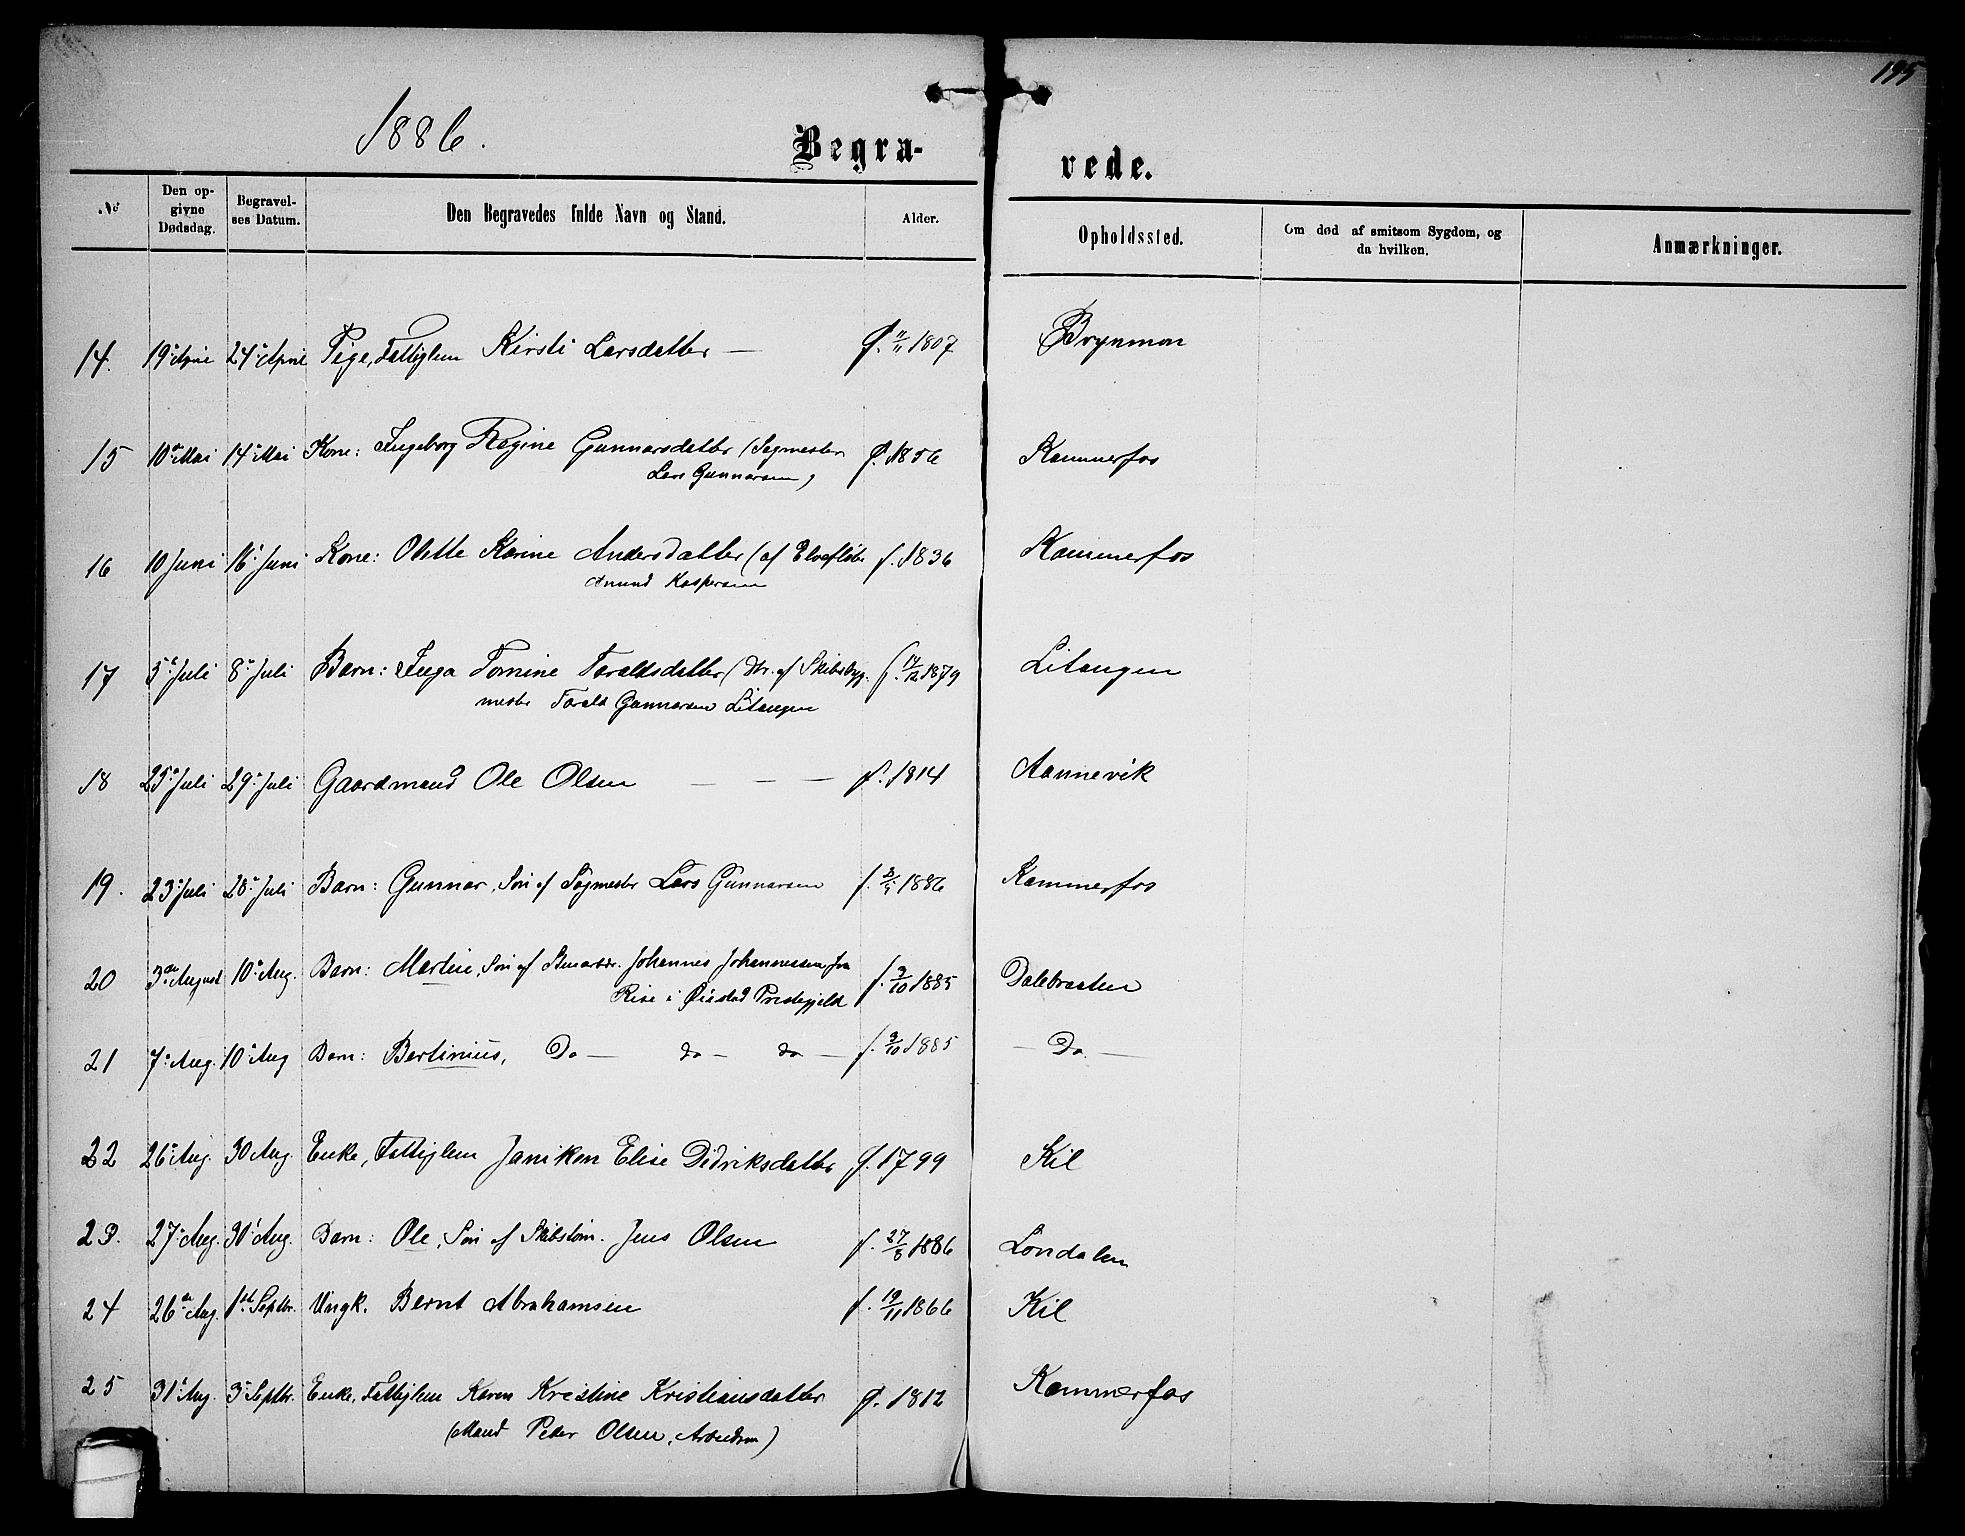 195
1886.
Begra- vede.
No Den op-givne Dødsdag. Begravel-ses Datum. Den Begravedes fulde Navn og Stand. Alder. Opholdssted. Om død af smitsom Sygdom, og da hvilken. Anmærkninger.
14. 19 April 24 April Pige, Fattiglem Kirsti Larsdatter — f. 11/11 1807 Brynmon
15 10 Mai 14 Mai Kone: Ingeborg Regine Gunnarsdatter (Sagmester f. 1856 Kammerfos
Lars Gunnarsen)
16 10 Juni 16 Juni Kone: Olette Karine Andersdatter (af Elvefløter f. 1836 Kammerfos
Anund Kaspersen
17 5 Juli 8 Juli Barn: Inga Tomine Taraldsdatter (Dtr. af Skibsbyg- f. 14/12 1879 Litangen
mester Tarald Gunnarsen Litangen
18 25 Juli 29 Juli Gaardmand Ole Olsen — — — f. 1814 Aannevik
19. 23 Juli 28 Juli Barn: Gunnar, Søn af Sagmester Lars Gunnarsen f. 1886 Kammerfos
20 3 August 10 Aug. Barn: Martin, Søn af Stenarbdr. Johannes Johannessen fra f. 9/10 1885 Dalebraaten
Rise i Øiestad Prestegjeld
21 7 Aug. 10 Aug Barn: Bertinius, Do — do — do — f. 9/10 1885 — Do —
22 26 Aug. 30 Aug. Enke, Fattiglem Janiken Elise Didriksdatter f. 1799 Kil
23. 27 Aug. 30 Aug. Barn: Ole, Søn af Skibstøm. Jens Olsen f. 27/8 1886 Londalen
24 26 Aug. 1 Septbr. Ungk. Bernt Abrahamsen f. 19/11 1866 Kil
25 31 Aug. 3 Septbr. Enke, Fattiglem Karen Kristine Kristiansdatter f. 1812 Kammerfos
(Mand Peder Olsen, Arbeidsm)